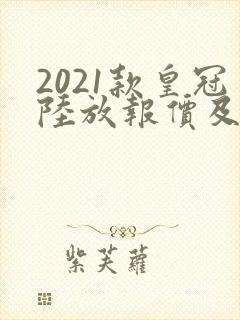 2021款皇冠
陸放報價及
紫芙蘿